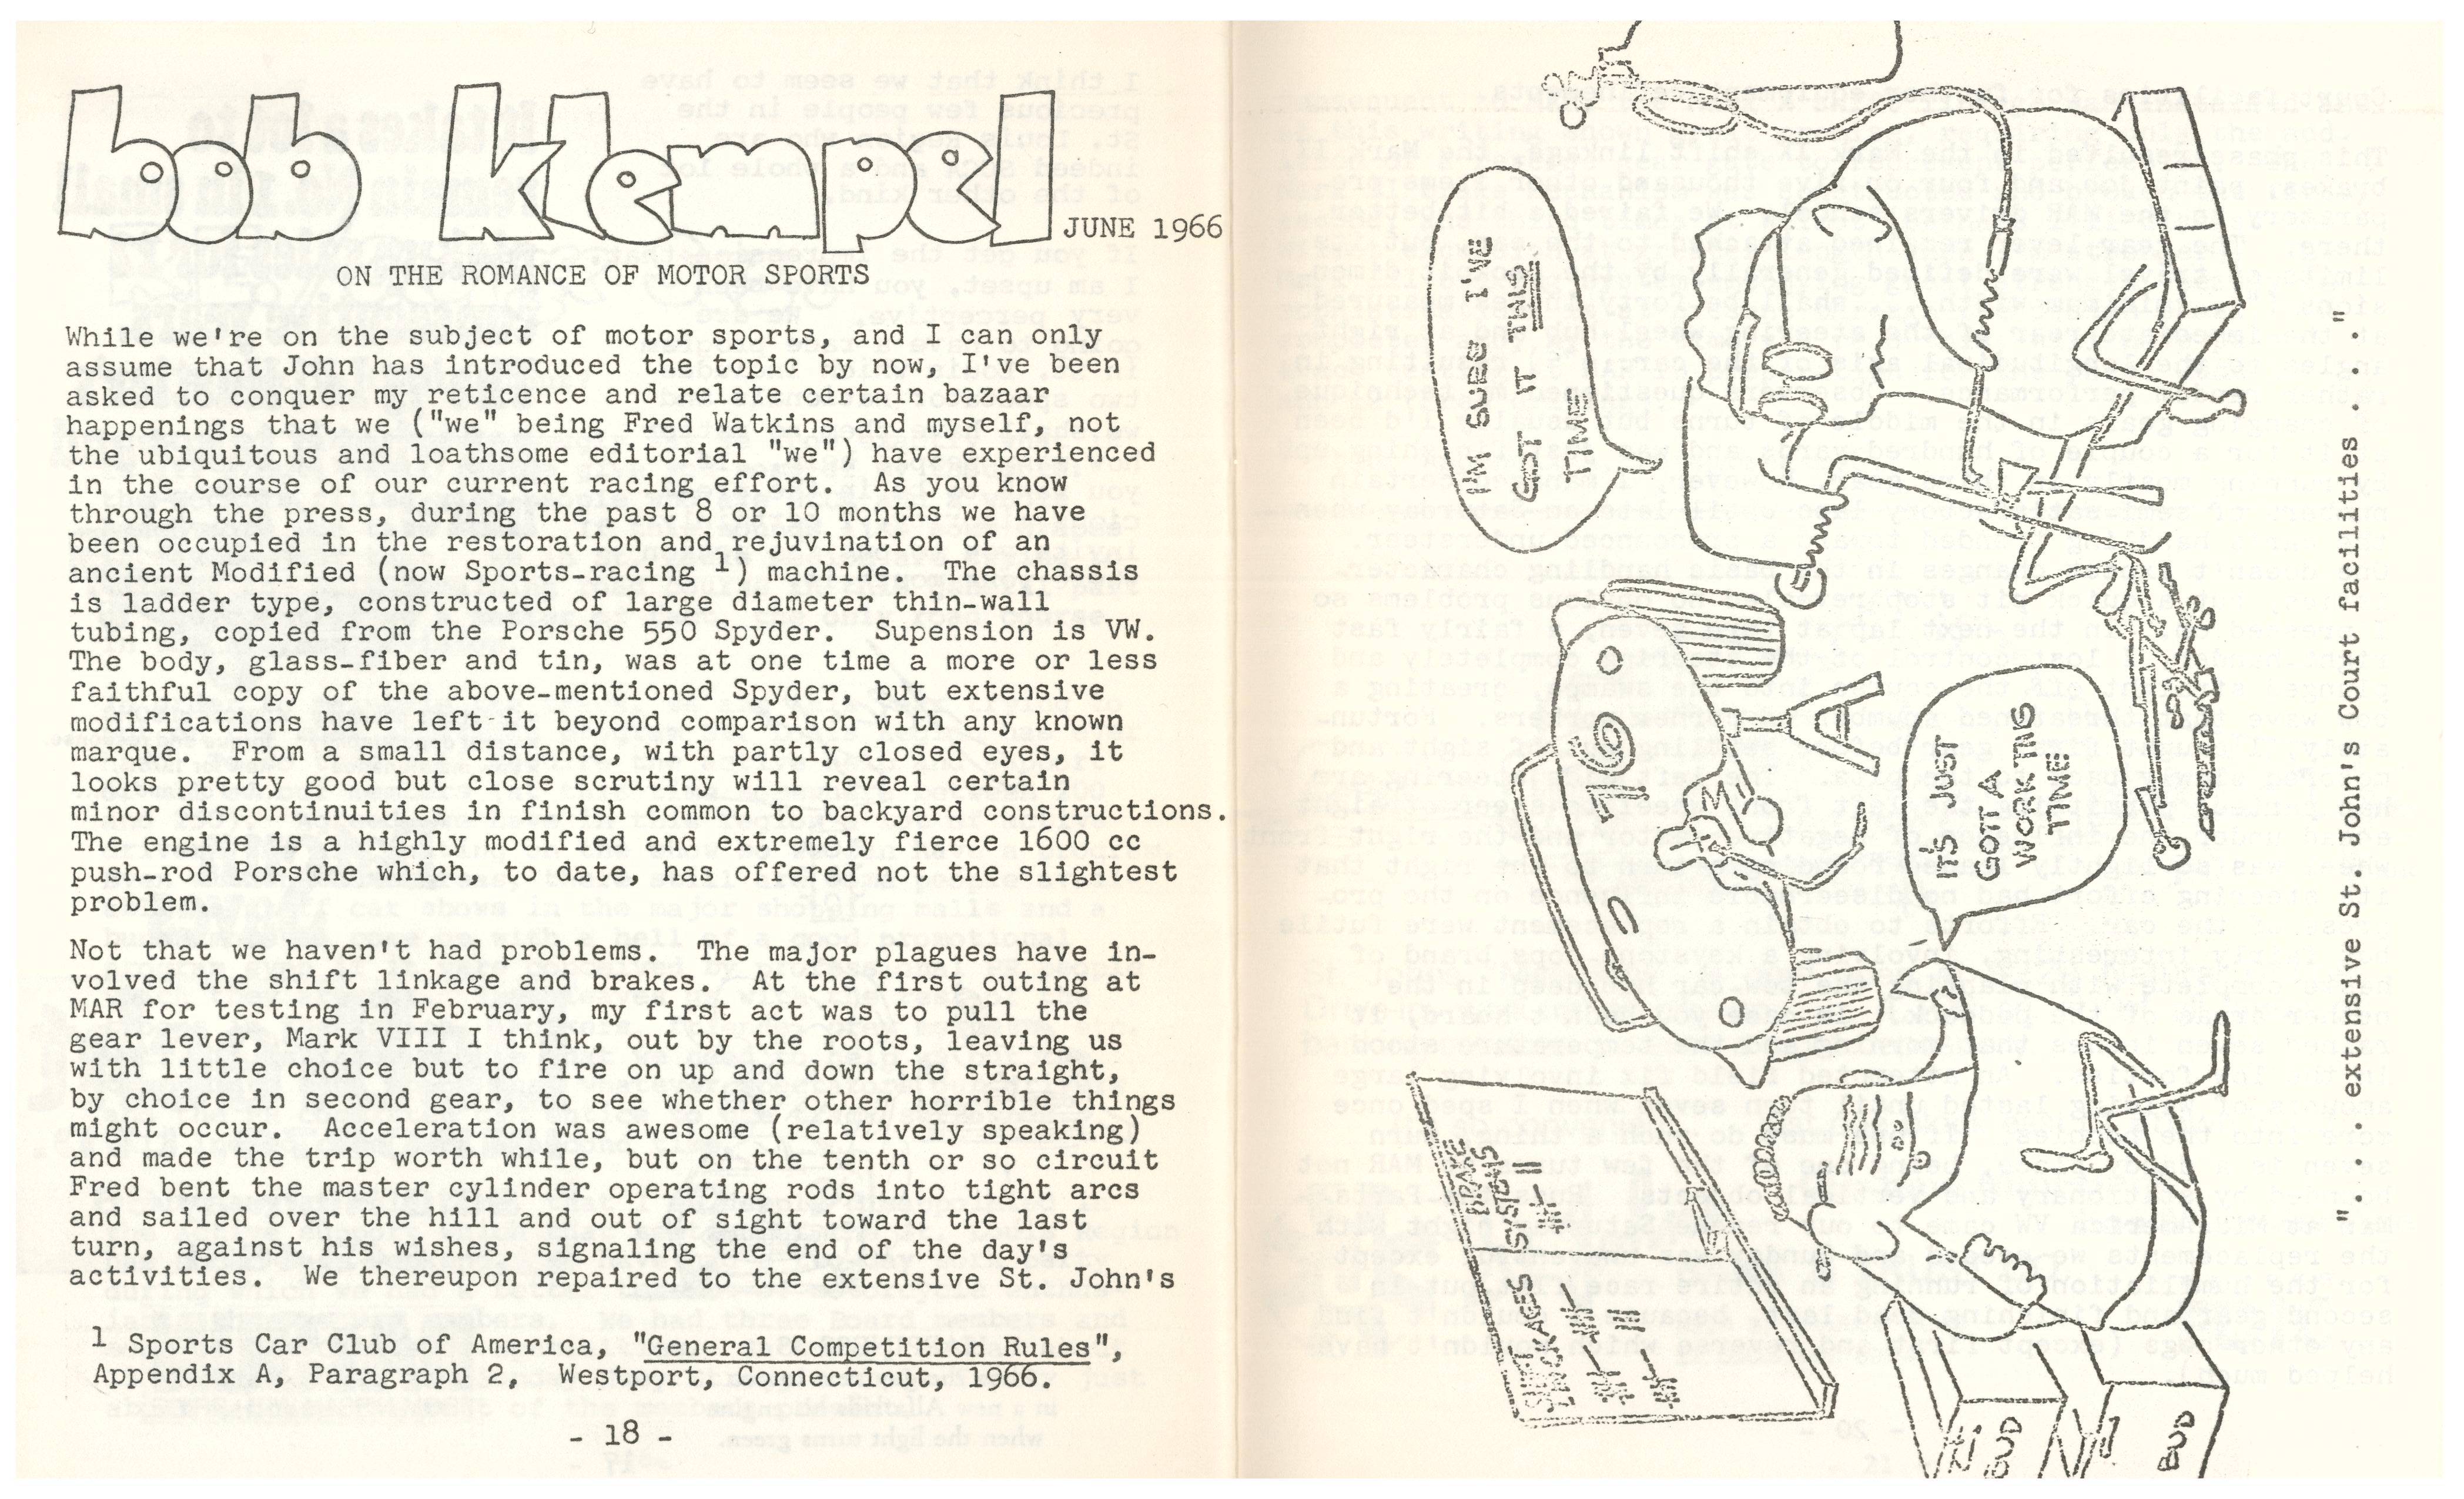 bob klempel
JUNE 1966
ON THE ROMANCE OF MOTOR SPORTS
While we're on the subject of motor sports, and I can only
assume that John has introduced the topic by now, I've been
asked to conquer my reticence and relate certain bazaar
happenings that we ("we" being Fred Watkins and myself, not
the ubiquitous and loathsome editorial "we") have experienced
in the course of our current racing effort. As you know
through the press, during the past 8 or 10 months we have
been occupied in the restoration and rejuvination of an
ancient Modified (now Sports-racing 1) machine. The chassis
is ladder type, constructed of large diameter thin-wall
tubing, copied from the Porsche 550 Spyder. Supension is VW.
The body, glass-fiber and tin, was at one time a more or less
faithful copy of the above-mentioned Spyder, but extensive
modifications have left it beyond comparison with any known
marque. From a small distance, with partly closed eyes, it
looks pretty good but close scrutiny will reveal certain
minor discontinuities in finish common to backyard constructions.
The engine is a highly modified and extremely fierce 1600 cc
push-rod Porsche which, to date, has offered not the slightest
problem.
Not that we haven't had problems. The major plagues have in-
volved the shift linkage and brakes. At the first outing at
MAR for testing in February, my first act was to pull the
gear lever, Mark VIII I think, out by the roots, leaving us
with little choice but to fire on up and down the straight,
by choice in second gear, to see whether other horrible things
might occur. Acceleration was awesome (relatively speaking)
and made the trip worth while, but on the tenth or so circuit
Fred bent the master cylinder operating rods into tight arcs
and sailed over the hill and out of sight toward the last
turn, against his wishes, signaling the end of the day's
activities. We thereupon repaired to the extensive St. John's
1 Sports Car Club of America, "General Competition Rules",
Appendix A, Paragraph 2, Westport, Connecticut, 1966.
- 18 -
I'M SURE I'VE
GOT IT THIS
TIME
76
M
IT'S JUST
GOTTA
WORK THIS
TIME
BRAKE
SYSTEMS
SHIFT
LINKAGES
". . . extensive St. John's Court facilities . . ."